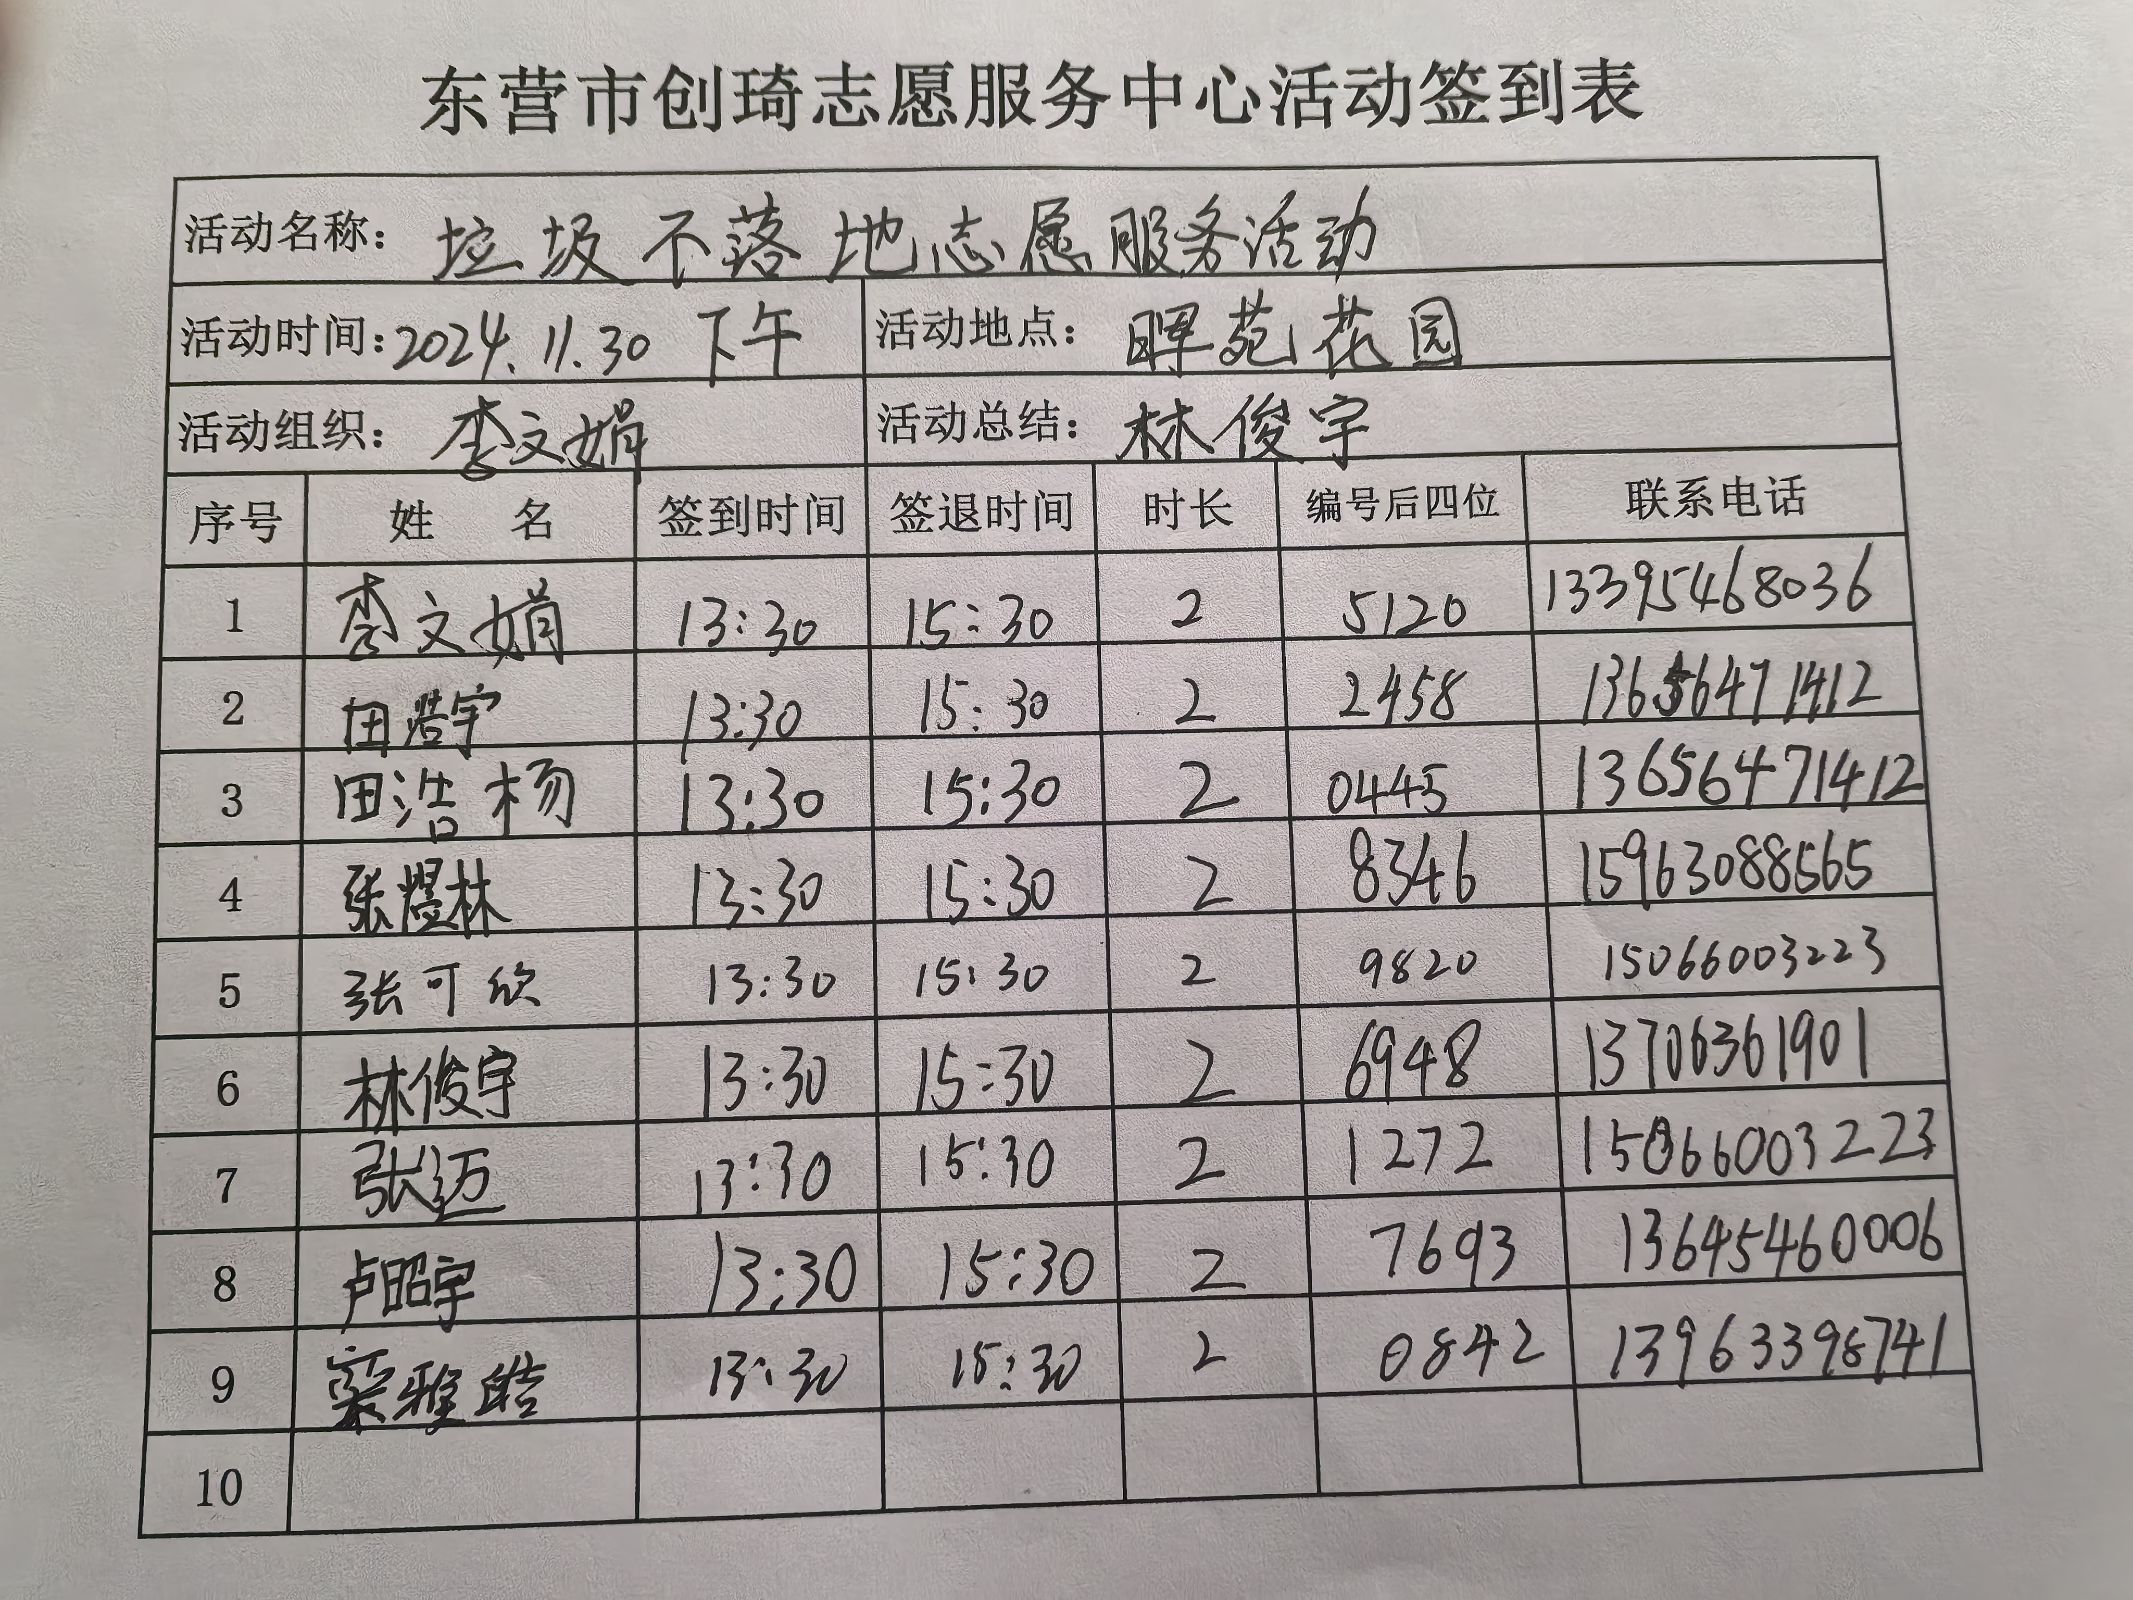 东营市创琦志愿服务中心活动签到表
活动名称：垃圾不落地志愿服务活动
活动时间：2024.11.30 下午 活动地点：晖苑花园
活动组织：李文娟 活动总结：林俊宇
序号 姓 名 签到时间 签退时间 时长 编号后四位 联系电话
1 李文娟 13:30 15:30 2 5120 13395468036
2 田浩宇 13:30 15:30 2 2458 13656471412
3 田浩杨 13:30 15:30 2 0445 13656471412
4 张煜林 13:30 15:30 2 8346 15963088565
5 张可欣 13:30 15:30 2 9820 15066003223
6 林俊宇 13:30 15:30 2 6948 13706361901
7 张迈 13:30 15:30 2 1272 15066003223
8 卢昭宇 13:30 15:30 2 7693 13645460006
9 綦雅皓 13:30 15:30 2 0842 13963398741
10